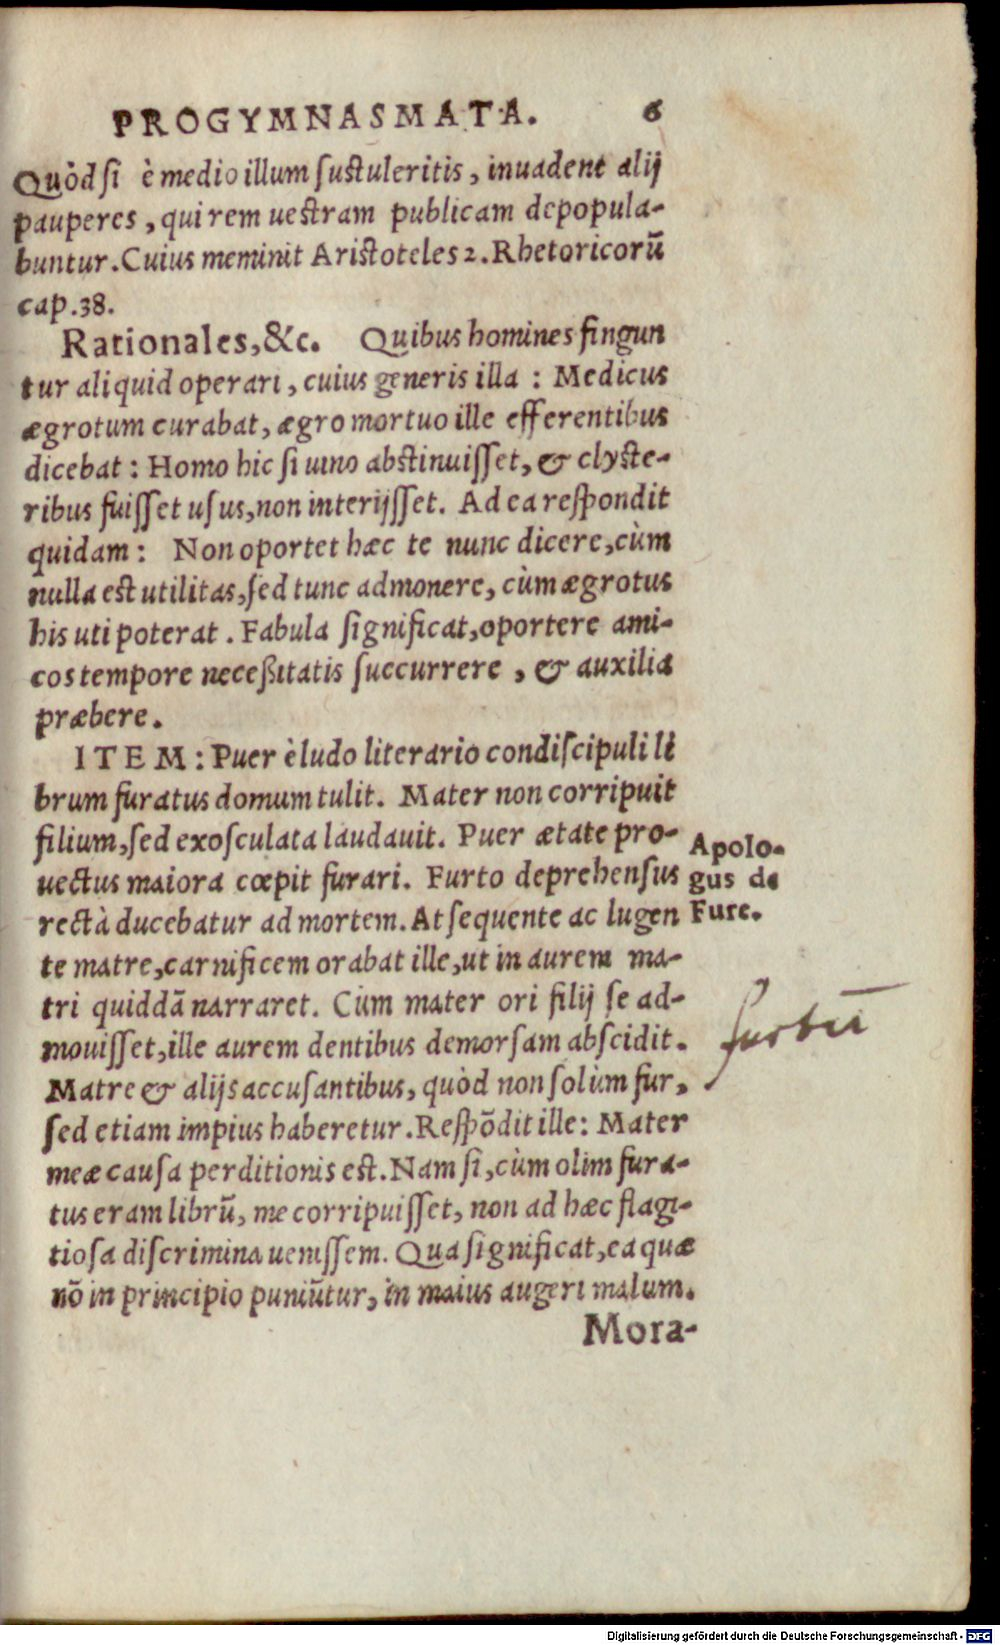 PROGYMNASMATA. 6
Quòd si è medio illum sustuleritis, inuadent alij
pauperes, qui rem uestram publicam depopula-
buntur. Cuius meminit Aristoteles 2. Rhetoricorũ
cap. 38.
Rationales, &c. Quibus homines fingun
tur aliquid operari, cuius generis illa : Medicus
ægrotum curabat, ægro mortuo ille efferentibus
dicebat : Homo hic si uino abstinuisset, & clyste-
ribus fuisset usus, non interijsset. Ad ea respondit
quidam : Non oportet hæc te nunc dicere, cùm
nulla est utilitas, sed tunc admonere, cùm ægrotus
his uti poterat. Fabula significat, oportere ami-
cos tempore necessitatis succurrere, & auxilia
præbere.
ITEM : Puer è ludo literario condiscipuli li
brum furatus domum tulit. Mater non corripuit
filium, sed exosculata laudauit. Puer ætate pro-
uectus maiora cœpit furari. Furto deprehensus
rectà ducebatur ad mortem. At sequente ac lugen
te matre, carnificem orabat ille, ut in aurem ma-
tri quiddã narraret. Cùm mater ori filij se ad-
mouisset, ille aurem dentibus demorsam abscidit.
Matre & alijs accusantibus, quòd non solùm fur,
sed etiam impius haberetur. Respõdit ille : Mater
meæ causa perditionis est. Nam si, cùm olim fura-
tus eram librũ, me corripuisset, non ad hæc flagi-
tiosa discrimina uenissem. Qua significat, ea quæ
nõ in principio puniũtur, in maius augeri malum.
Mora-
Apolo-
gus de
Fure.
furtū
Digitalisierung gefördert durch die Deutsche Forschungsgemeinschaft - DFG